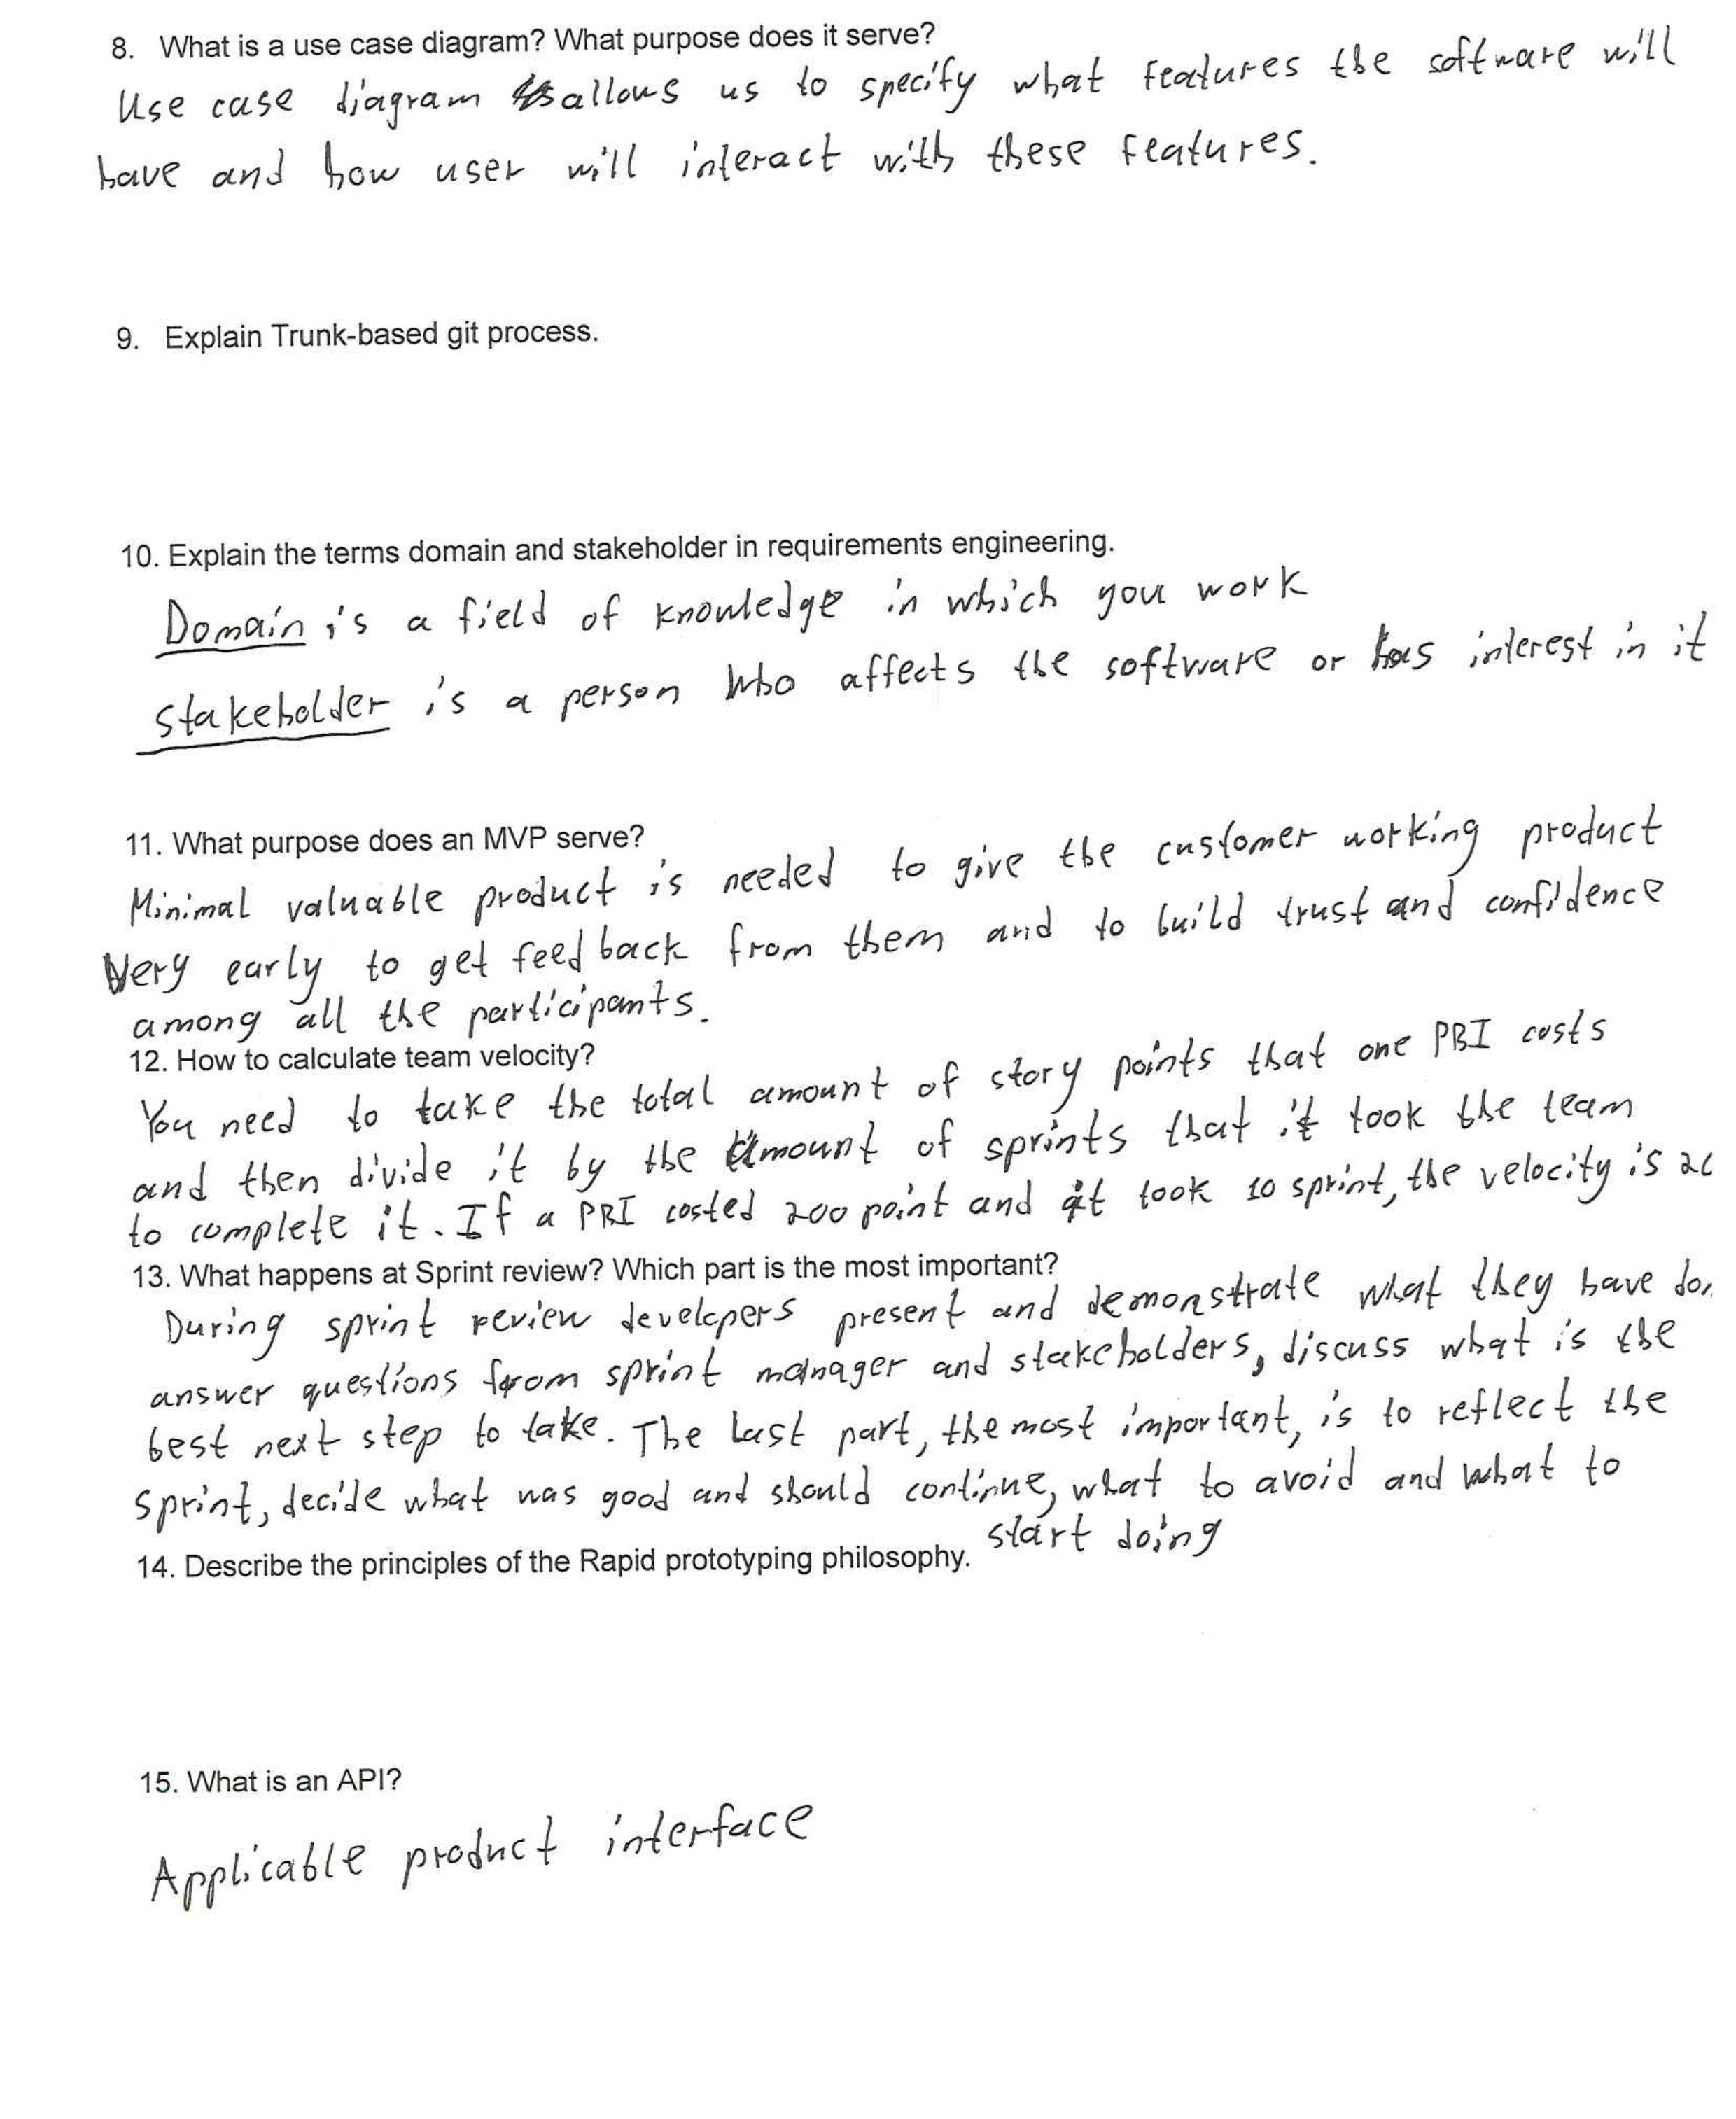 8. What is a use case diagram? What purpose does it serve?
Use case diagram allows us to specify what features the software will
have and how user will interact with these features.
9. Explain Trunk-based git process.
10. Explain the terms domain and stakeholder in requirements engineering.
Domain is a field of knowledge in which you work
stakeholder is a person who affects the software or has interest in it
11. What purpose does an MVP serve?
Minimal valuable product is needed to give the customer working product
Very early to get feedback from them and to build trust and confidence
among all the participants.
12. How to calculate team velocity?
You need to take the total amount of story points that one PBI costs
and then divide it by the amount of sprints that it took the team
to complete it. If a PBI costed 200 point and it took 10 sprint, the velocity is 20
13. What happens at Sprint review? Which part is the most important?
During sprint review developers present and demonstrate what they have don
answer questions from sprint manager and stakeholders, discuss what is the
best next step to take. The last part, the most important, is to reflect the
sprint, decide what was good and should continue, what to avoid and what to
start doing
14. Describe the principles of the Rapid prototyping philosophy.
15. What is an API?
Applicable product interface